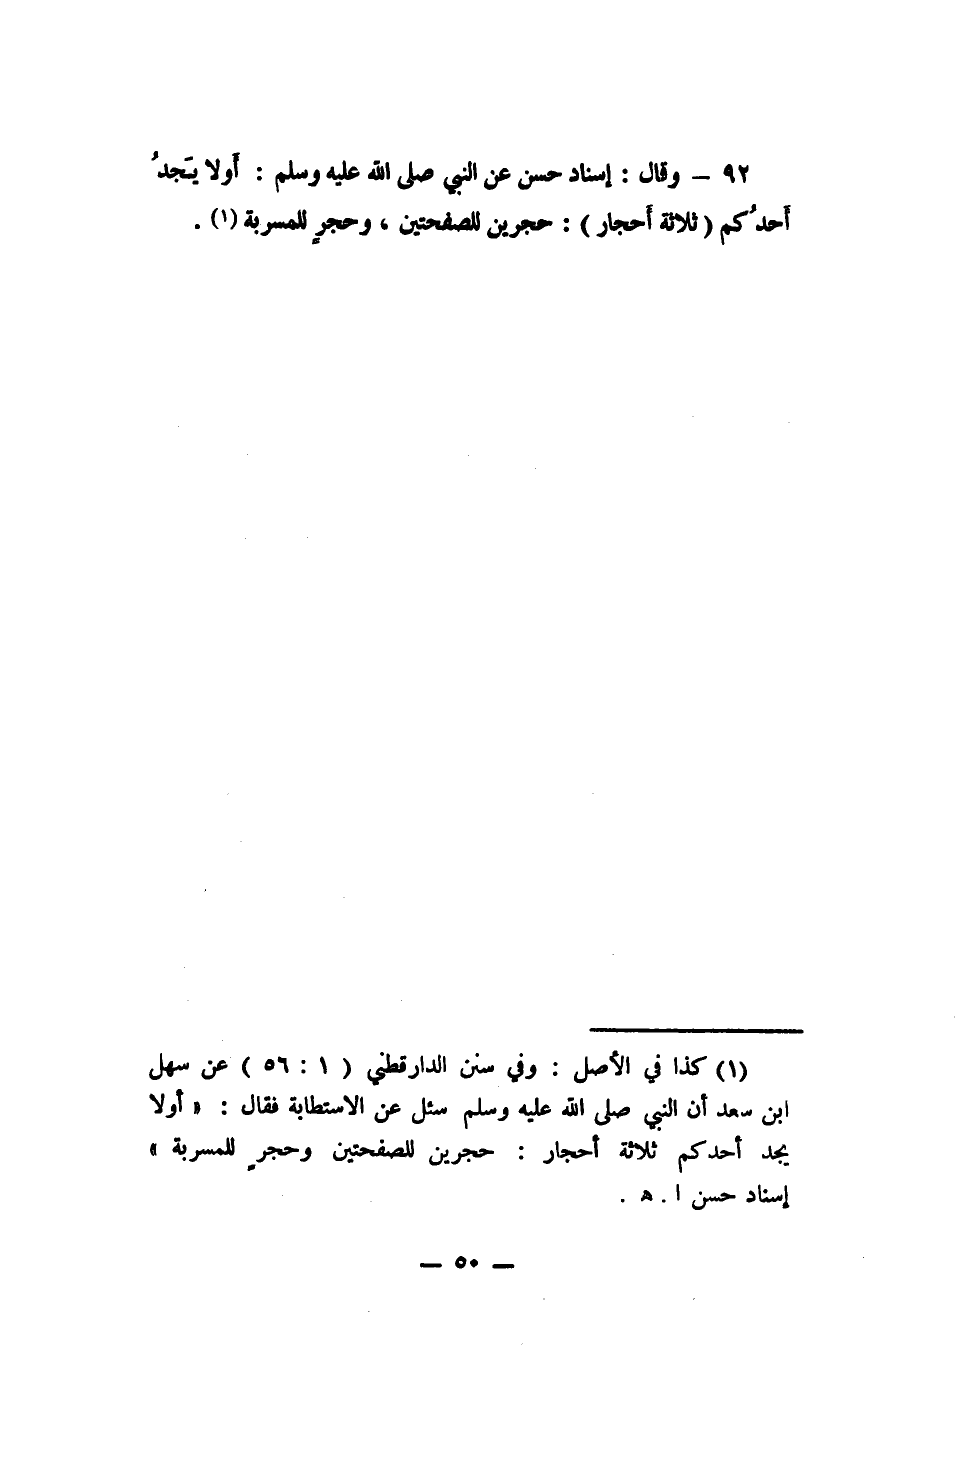 ٩٢ – وقال : إسناد حسن عن النبي صلى الله عليه وسلم : أولا يَجدُ
أحدُكم ( ثلاثة أحجار ) : حجرين للصفحتين ، وحجرٍ للمسربة (١) .
(١) كذا في الأصل : وفي سنن الدارقطني ( ١ : ٥٦ ) عن سهل
ابن سعد أن النبي صلى الله عليه وسلم سئل عن الاستطابة فقال : « أولا
يجد أحدكم ثلاثة أحجار : حجرين للصفحتين وحجرٍ للمسربة »
إسناد حسن ا . ه .
– ٥٠ –